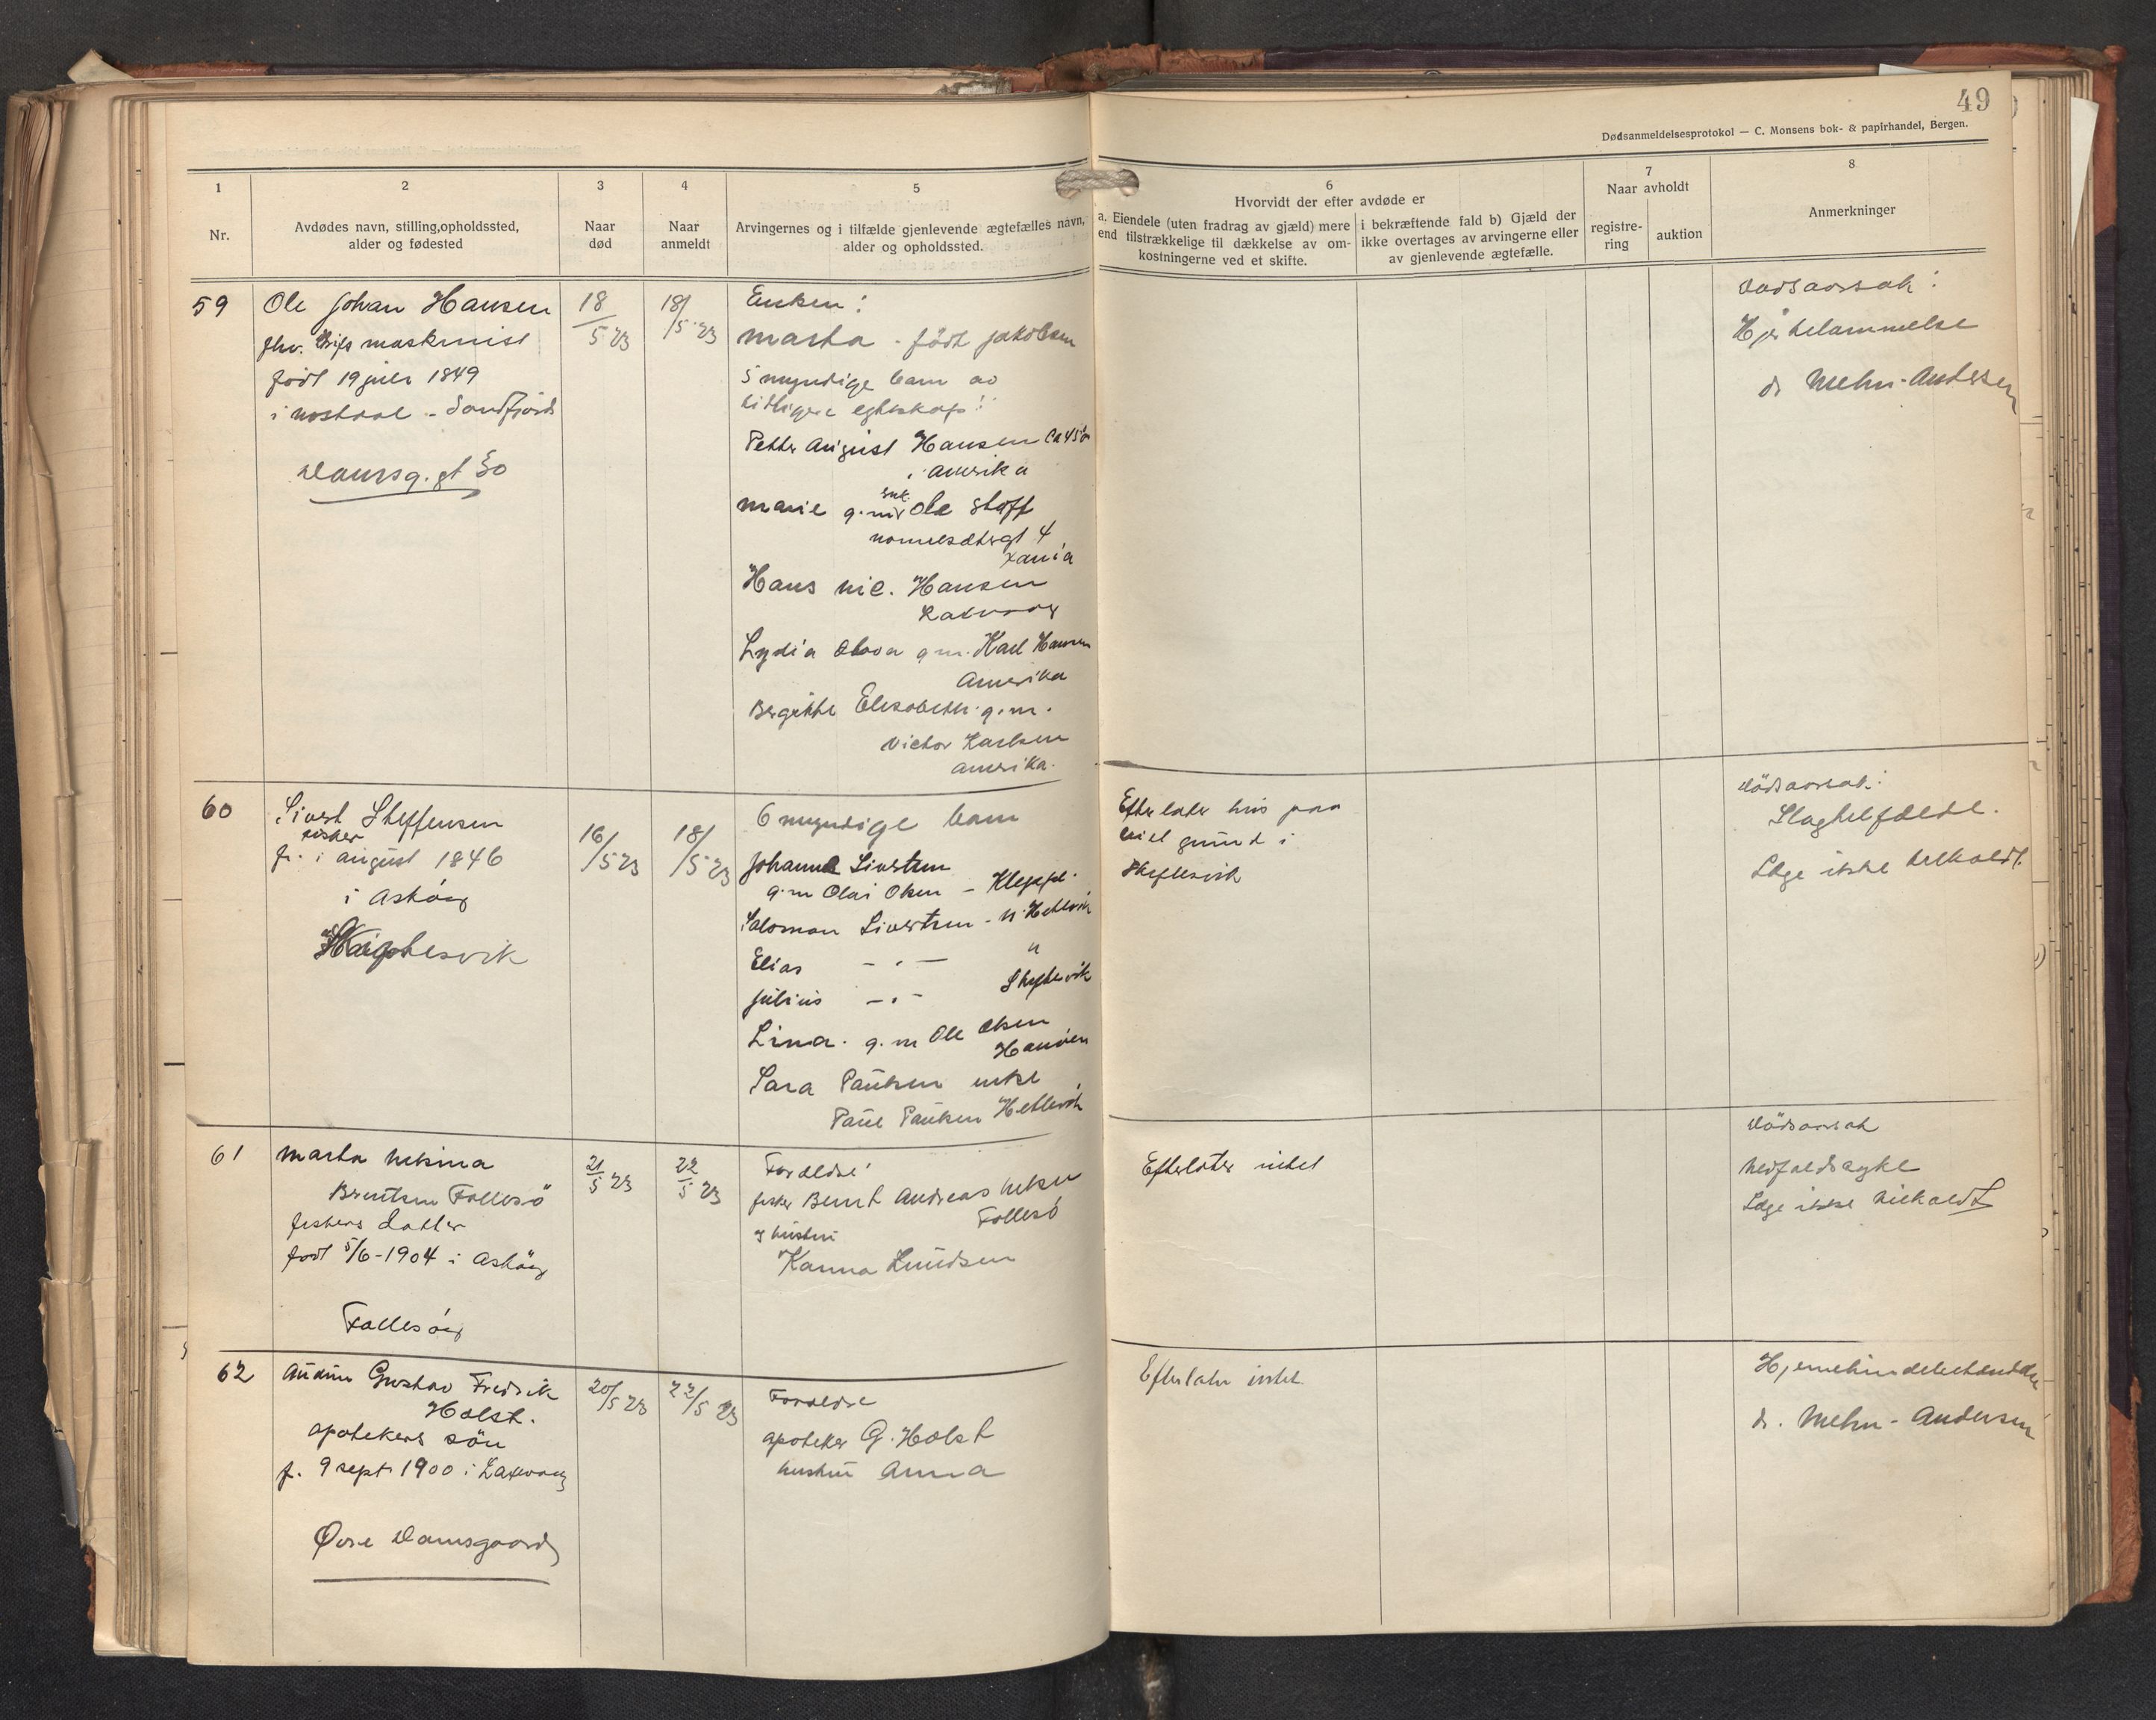 49
Dødsanmeldelsesprotokol — C. Monsens bok- & papirhandel, Bergen.
1
Nr.
2
Avdødes navn, stilling, opholdssted,
alder og fødested
3
Naar
død
4
Naar
anmeldt
5
Arvingernes og i tilfælde gjenlevende ægtefælles navn,
alder og opholdssted.
6
Hvorvidt der efter avdøde er
a. Eiendele (uten fradrag av gjæld) mere
end tilstrækkelige til dækkelse av om-
kostningerne ved et skifte.
i bekræftende fald b) Gjæld der
ikke overtages av arvingerne eller
av gjenlevende ægtefælle.
7
Naar avholdt
registre-
ring
auktion
8
Anmerkninger
59
Ole Johan Hansen
fhv. maskinist
født 19 juli 1849
i
Damsg. gt 30
18/5 23
18/5 23
Enken:
Marta - født Jakobsen
5 myndige barn av
tidligere egteskap:
Petter August Hansen ca 45 år
i Amerika
Marie g. m. Ole
4
Xania
Hans Nic. Hansen
Laxevaag
Lydia Olava g.m. Karl Hansen
Amerika
Bergitte Elisabeth g.m.
Victor Karlsen
Amerika.
Dødsaarsak:
Hjertelammelse
dr Mehn-Andersen
60
Sivert Steffensen
fisker
f. i august 1846
i Askøy
16/5 23
18/5 23
6 myndige barn
Johanna Sivertsen
g.m Olai Olsen - Kleppe
Salomon Sivertsen - N. Hetlevik
Elias - " - "
Julius - " - Skiftesvik
Lina. g.m Ole Olsen
Hanøien
Sara Paulsen enke
Paul Paulsen Hetlevik
Efterlater hus paa
leiet grund i
Skiftesvik
Dødsaarsak:
Slagtilfælde.
Læge ikke tilkaldt.
61
Marta Nekina
Berntsen Follesø
fiskers datter
født 5/6-1904 i Askøy
Follesøy
21/5 23
22/5 23
Forældre:
fisker Bernt Andreas
Follesø
og hustru
Hanna Knudsen
Efterlater intet
Dødsaarsak
Nedfaldssyke
Læge ikke tilkaldt
62
Audun Gustav Fredrik
Holst.
apotekers søn
f. 9 sept. 1900 i Laxevaag
Øvre Damsgaard
20/5 23
22/5 23
Forældre
apoteker G. Holst
hustru Anna
Efterlater intet
Hjernehindebetændelse
dr. Mehn-Andersen